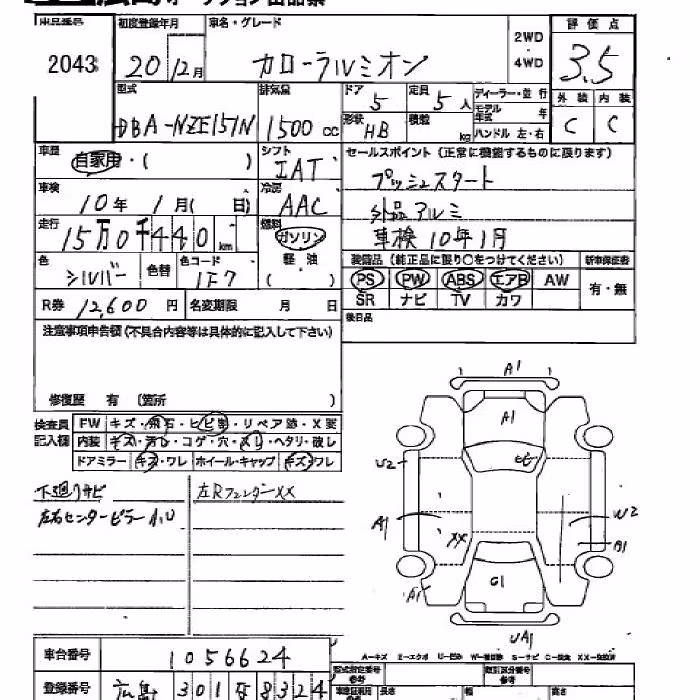 広島オークション出品票
出品番号 初度登録年月 車名・グレード 2WD 評価点
2043 20年12月 カローラルミオン 4WD 3.5
型式 排気量 ドア 定員 ディーラー・並行 外装 内装
DBA-NZE151N 1500cc 5 5人 モデル年式 年 C C
形状 HB 積載 kg ハンドル 左・右
車歴 自家用・( ) シフト セールスポイント (正常に機能するものに限ります)
IAT プッシュスタート
車検 10年1月( 日) 冷房 AAC 外品アルミ
走行 15万0千440km 燃料 ガソリン 車検10年1月
色 シルバー 色替 色コード 1F7 軽油 ( ) 装備品 (純正品に限り○をつけてください) 新車保証書
PS PW ABS エアB AW 有・無
R券 12,600円 名変期限 月 日 SR ナビ TV カワ
後日品
注意事項申告欄(不具合内容等は具体的に記入して下さい)
修復歴 有 (箇所 )
検査員記入欄 FW キズ・飛石・ヒビ割・リペア跡・X要
内装 キズ・汚レ・コゲ・穴・スレ・ヘタリ・破レ
ドアミラー キズ・ワレ ホイール・キャップ キズ・ワレ
下廻りサビ 左Rフェンダーxx
左右センターピラーA,U
A1
A1
U2 W2
A1 B1
XX
A1 C1
UA1
A-キズ E-エクボ U-凹み W-補修跡 S-サビ C-腐食 XX-交換済
車台番号 1056624 型式指定番号 参考 類別区分番号 参考
登録番号 広島 301 ち 8324 車検証記載 参考 長さ 幅 高さ